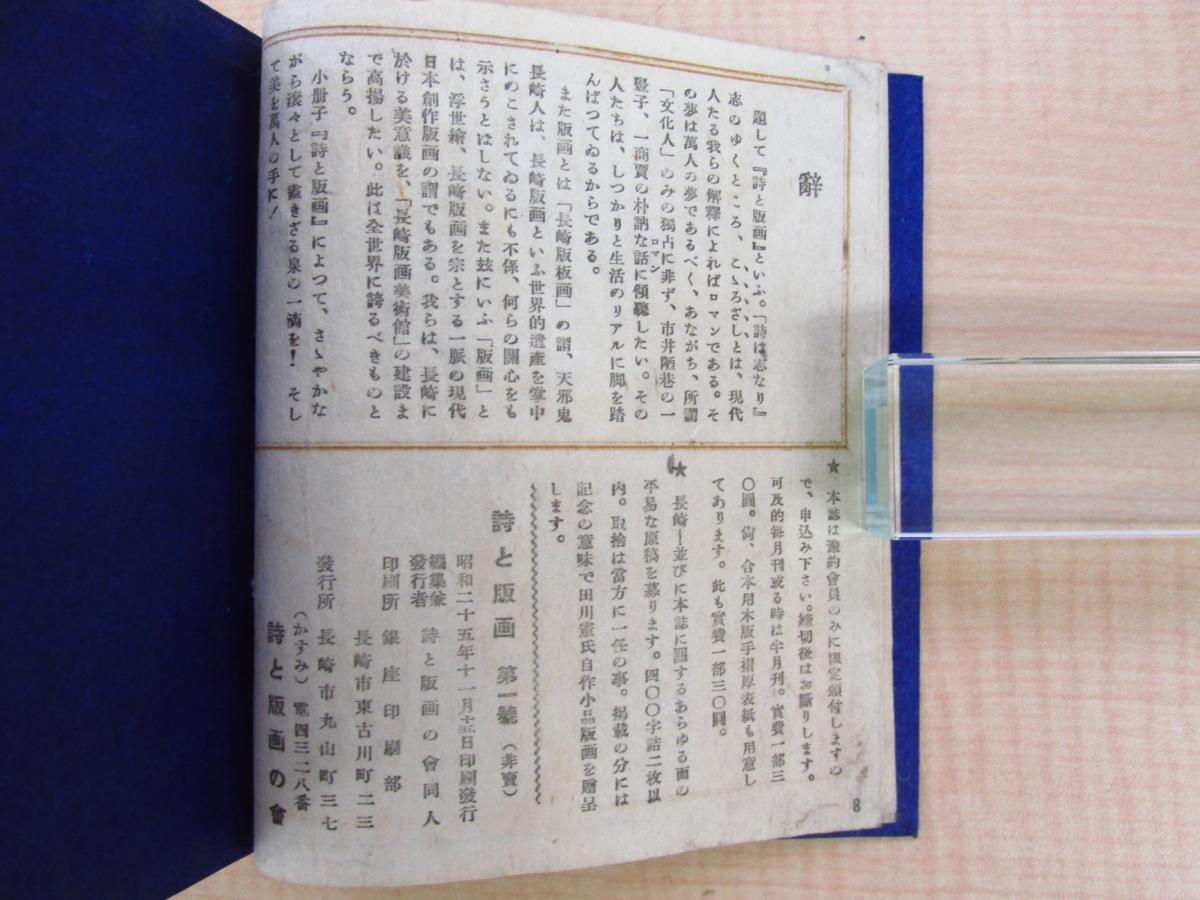 辭
題して『詩と版画』といふ。「詩は志なり』
志のゆくところ、こゝろざしとは、現代
人たる我らの解釋によればロマンである。そ
の夢は萬人の夢であるべく、あながち、所謂
「文化人」のみの獨占に非ず、市井陋巷の一
豎子、一商賈の朴訥な話に傾聽したい。その
ロマン
人たちは、しつかりと生活のリアルに脚を踏
んばつてゐるからである。
また版画とは「長崎版板画」の謂、天邪鬼
長崎人は、長崎版画といふ世界的遺産を掌中
にのこされてゐるにも不係、何らの關心をも
示さうとはしない。また玆にいふ「版画」と
は、浮世繪、長崎版画を宗とする一脈の現代
日本創作版画の謂でもある。我らは、長崎に
於ける美意議を、「長崎版画美術館」の建設ま
で高揚したい。此は全世界に誇るべきものと
ならう。
小册子『詩と版画』によつて、さゝやかな
がら滾々として盡きざる泉の一滴を！ そし
て美を萬人の手に！
★ 本誌は豫約會員のみに限定頒付しますの
で、申込み下さい。締切後はお斷りします。
可及的每月刊或る時は半月刊。實費一部三
〇圓。尙、合本用木版手摺厚表紙も用意し
てあります。此も實費一部三〇圓。
★ 長崎―並びに本誌に關するあらゆる面の
平易な原稿を募ります。四〇〇字詰二枚以
内。取捨は當方に一任の事。掲載の分には
記念の意味で田川憲氏自作小品版画を贈呈
します。
詩と版画 第一號（非賣）
昭和二十五年十一月十五日印刷發行
編集兼
發行者 詩と版画の會同人
印刷所 銀座印刷部
長崎市東古川町二三
發行所 長崎市丸山町三七
（かすみ）電四三二八番
詩と版画の會
8